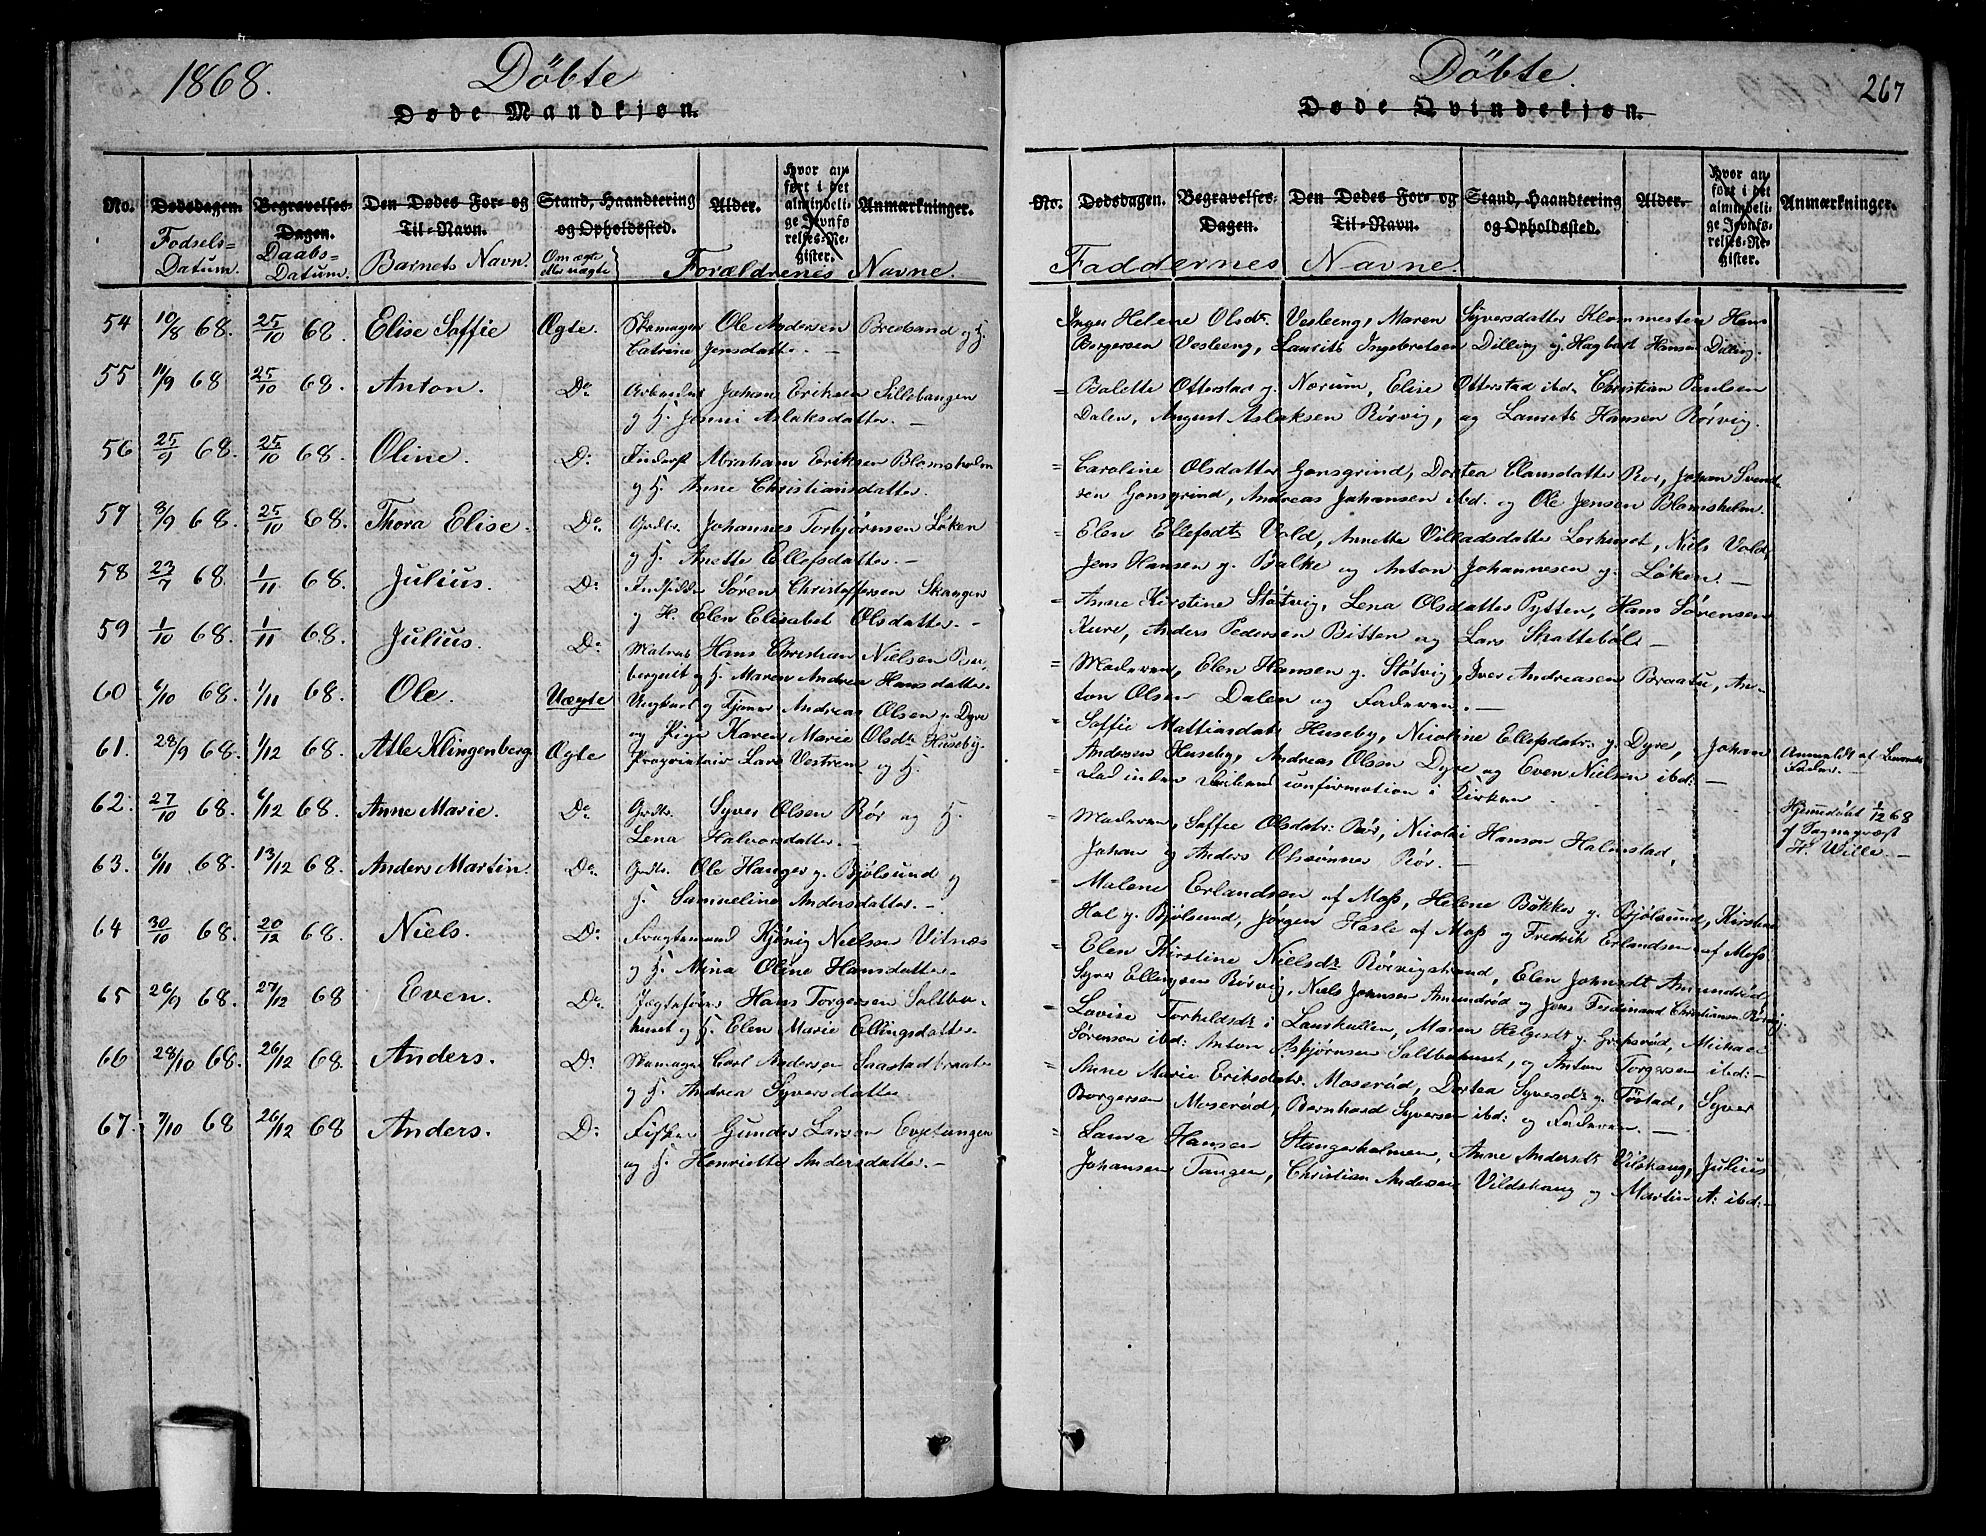 1868.
Døbte
Døde Mandkjøn.
No.
Dødsdagen.
Fødsels-
Datum.
Begravelses-
Dagen.
Daabs-
Datum.
Den Dødes For- og
Til-Navn.
Barnets Navn.
Stand, Haandtering
og Opholdssted.
Om ægte
eller uægte
Alder.
Hvor an-
ført i det
almindeli-
ge Jevnfø-
relses-Re-
gister.
Anmærkninger.
Forældrenes Navne.
54 10/8 68. 25/10 68. Elise Soffie Ægte. Skomager Ole Andersen Bredsand og H.
Catrine Jensdatter. —
55 11/9 68 25/10 68. Anton. Do Arbeider Johan Eriksen Sillebangen
og H. Jenni Aslaksdatter. —
56 25/9 68. 25/10 68. Oline. Do Inderst Abraham Eriksen Blomsholm
og H. Anne Christiansdatter.
57 8/9 68. 25/10 68. Thora Elise. Do Grdbr. Johannes Torbjørnsen Løken
og H. Anette Ellefsdatter. —
58 23/7 68. 1/11 68. Julius. Do Indsidder Søren Christoffersen Skangen
og H. Elen Elisabet Olsdatter. —
59 1/10 68. 1/11 68. Julius. Do Matros Hans Christian Nielsen
og H. Maren Andrea Hansdatter.
60 6/10 68. 1/11 68. Ole. Uægte Ungkarl og Tjener Andreas Olsen g. Dyre
og Pige Karen Marie Olsdr. Huseby.
61. 28/9 68. 1/12 68. Atle Klingenberg Ægte Proprietair Lars Vestrem og H.
62. 27/10 68. 6/12 68. Anne Marie. Do Grdbr. Syver Olsen Rør og H.
Lena Halvorsdatter. —
63. 6/11 68. 13/12 68. Anders Martin. Do Grdbr. Ole Hanger g. Bjølsund og
H. Samueline Andersdatter. —
64 30/10 68. 20/12 68. Niels. Do Fragtemand Kjønig Nielsen Vitnæs
og H. Mina Oline Hansdatter.
65 26/9 68. 27/12 68 Even. Do Jægtefører Hans Torgersen Saltbo-
huset og H. Elen Marie Ellingsdatter.
66 28/10 68. 26/12 68. Anders. Do Skomager Carl Andersen Saastadbraaten
og H. Andrea Syversdatter
67. 7/10 68 26/12 68 Anders. Do Fisker Gunder Larsen Evjetangen
og H. Henriette Andersdatter. —
Døbte.
267
Døde Qvindekjøn.
No.
Dødsdagen.
Begravelses-
Dagen.
Den Dødes For- og
Til-Navn.
Stand, Haandtering
og Opholdssted.
Alder.
Hvor an-
ført i det
almindeli-
ge Jevnfø-
relses-Re-
gister.
Anmærkninger.
Faddernes Navne.
Inger Helene Olsdr. Vesleeng, Maren Syversdatter Klommesten Hans
Borgersen Vesleeng, Laurits Ingebretsen Dilling og Hagbart Hansen Dilling.
= Balette Otterstad g. Norum, Elise Otterstad ibd. Christian Paulsen
Dalen, August Aslaksen Rørvig, og Laurits Hansen Rørvig.
= Caroline Olsdatter Gonsgrind, Dortea Clausdatter Rør, Johan Svend-
sen Gonsgrind, Andreas Johansen ibd. og Ole Jensen Blomsholm.
= Elen Ellefsdtr Vold, Annette Villadsdatter Lerhuset, Niels Vold,
Jens Hansen g. Balke og Anton Johannesen g. Løken. —
= Anne Kirstine Støtvig, Lena Olsdatter Pytten, Hans Sørensen
Kure, Anders Pedersen Bitten og Lars Skattebøl —
= Moderen, Elen Hansen g. Støtvig, Iver Andreasen Braaten, An-
ton Olsen Dalen og Faderen. —
= Soffie Mattiasdatr Huseby, Nicoline Ellefsdatr. g. Dyre, Johan
Andersen Huseby, Andreas Olsen Dyre og Even Nielsen ibd: —
= confirmation i Kirken Anmeldt af Barnets
Fader. —
= Moderen, Soffie Olsdatr: Rør, Nicolai Hansen Halmstad, Hjemmedøbt 1/12 68
Johan og Anders Olssønner Rør. — af Sognepræst
H. Wille. —
= Malene Erlandsen af Moss, Helene Bakker g. Bjølsund, Kirstine
Hol g. Bjølsund, Jørgen Hasle af Moss og Fredrik Erlandsen af Moss.
= Elen Kirstine Nielsdr Rørvigstrand, Elen Johnsdt Amundrød,
Syver Ellingsen Rørvig, Niels Johnsen Amundrød og Jens Ferdinand Christiansen Rørvig.
= Lovise Torkeldsdr i Lauskullen, Maren Helgesdt g. Gropsrød, Mickael
Sørensen ibd: Anton Asbjørnsen Saltbohuset, og Anton Torgersen ibd: —
= Anne Marie Eriksdatr. Moserød, Dortea Syversdr g. Tøstad, Syver
Borgersen Moserød, Bernhard Syversen ibd: og Faderen. —
= Laura Hansen Stangerholmen, Anne Andersdt Vilskoug, Julius
Johansen Tangen, Christian Andersen Vildskoug og Martin A: ibd: —